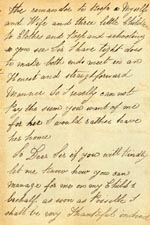 the remainder to keep a Myself
and Wife and three little Children
to Clothe and Keep and schooling
as you see Sir I have tight work
to make both ends meet in an
Honest and straightforward
Manner So I really can not
Pay the sum you want of me
for her I would rather have
her home
So Dear Sir if you will kindly
let me know how you can
manage for me on my Childs
behalf as soon as Possible I
shall be very Thankful indeed